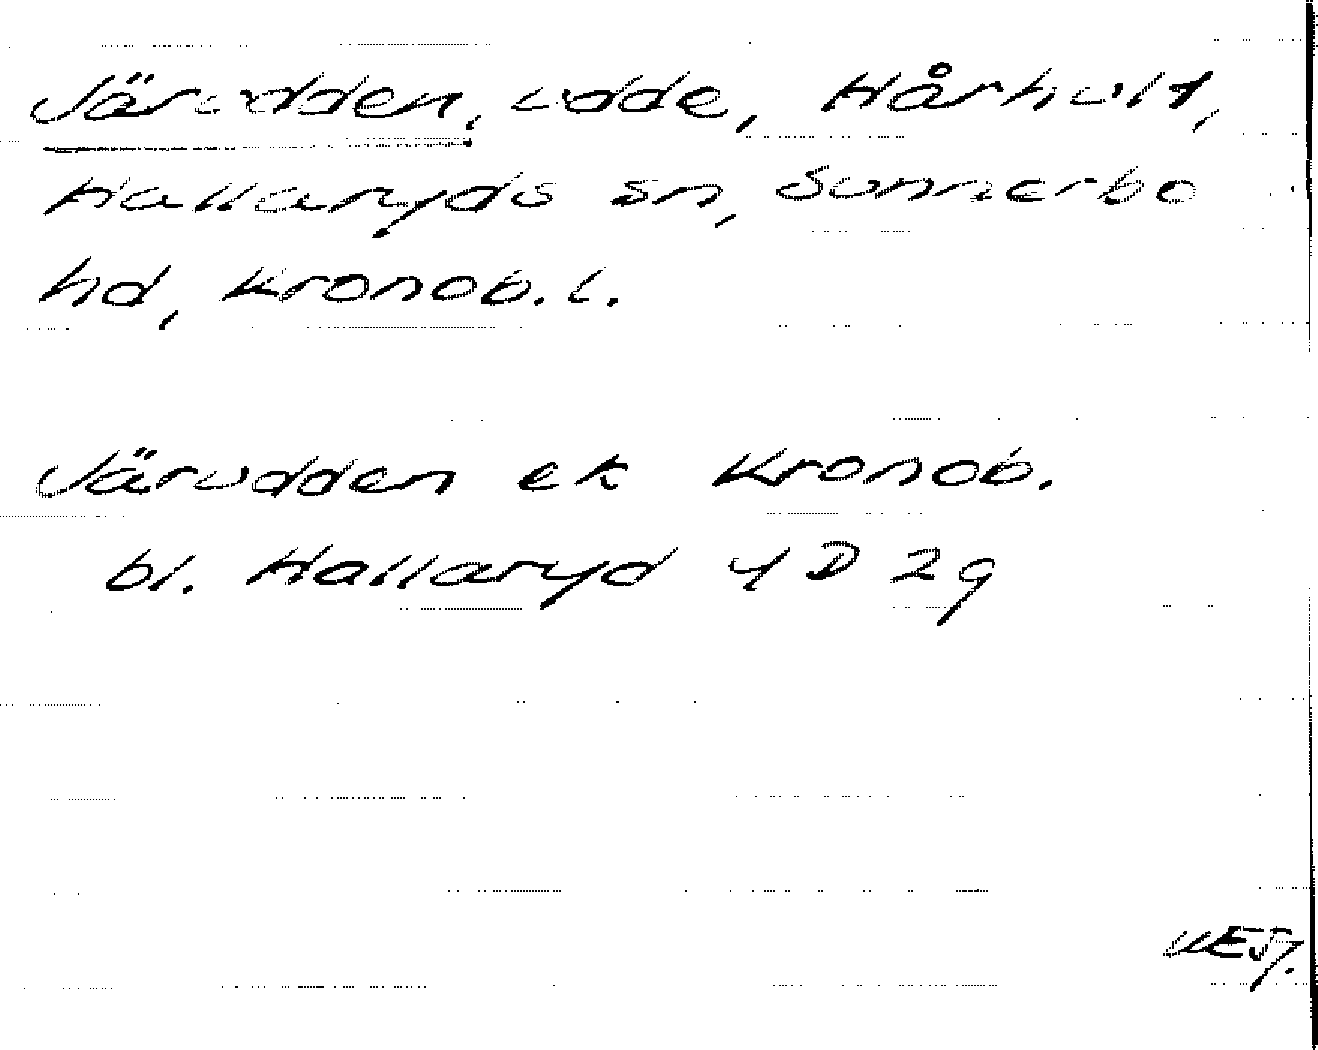 Järudden, udde, Hårhult,
Hallaryds sn, Sunnerbo
hd, Kronob. l.
Järudden ek Kronob.
bl. Hallaryd 4D 2g